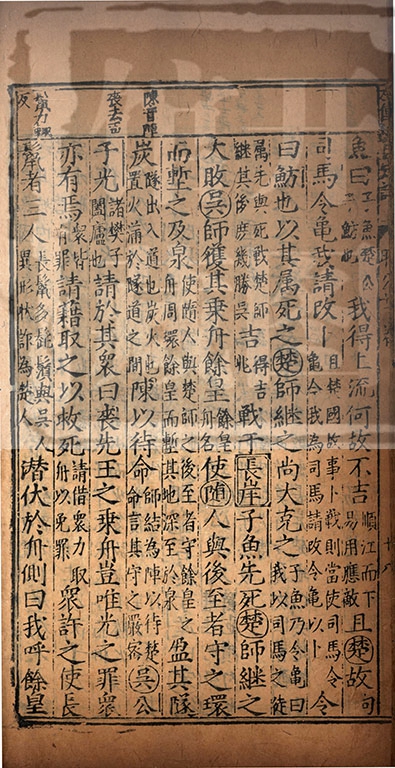 魚曰子魚楚公子魴也我得上流何故不吉順江而下易用應敵且楚故句
司馬令龜我請改卜且楚國故事卜戰則當使司馬令龜今我為司馬請改令龜以卜令
曰魴也以其属死之楚師継之尚大克之子魚乃令龜曰我以司馬之徒
属先與死戰楚師継其後庶幾勝吳吉得吉兆戰于長岸子魚先死楚師継之
大敗吳師獲其乗舟餘皇餘皇舟名使隨人與後至者守之環
而塹之及泉使隨人與楚師之後至者守餘皇之舟周環餘皇而塹其地深至於泉盈其隧
陳音陣
炭隧出入道也炭火也置火滿於隧道之間陳以待命師結為陣以待楚命言其守之嚴密吳公
喪去声
子光諸樊子闔廬也請於其衆曰喪先王之乗舟豈唯光之罪衆
亦有焉衆皆有罪請藉取之以救死請借衆力取舟以免罪衆許之使長
鬣力輒反
鬣者三人長鬣多髭鬚與吳人異形狀詐為楚人潜伏於舟側曰我呼餘皇